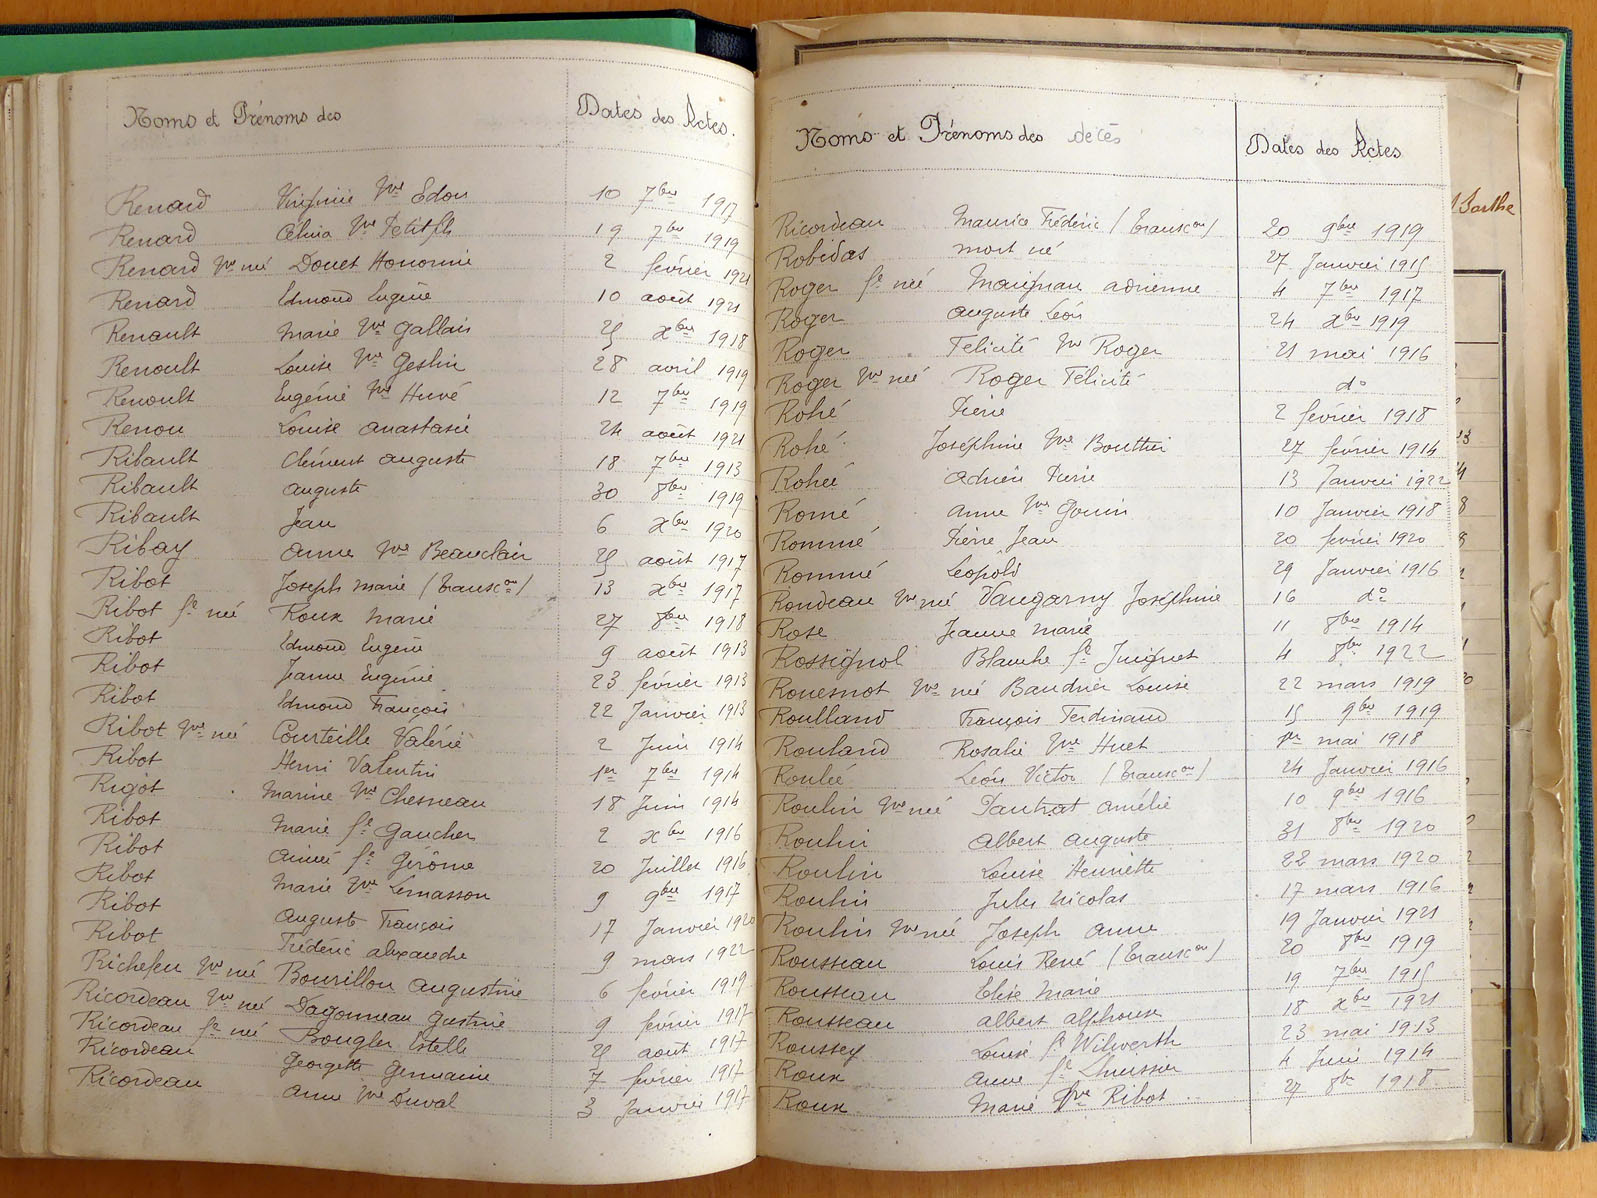 Noms et Prénoms des Dates des Actes.
Renard Virginie Vve Edon 10 7bre 1917
Renard Célina Vve Petitfils 19 7bre 1919
Renard Vve née Douet Honorine 2 février 1921
Renard Edmond Eugène 10 août 1921
Renault Marie Vve Gallais 25 xbre 1918
Renoult Louise Vve Geslin 28 avril 1919
Renoult Eugénie Vve Huvé 12 7bre 1919
Renou Louise Anastasie 24 août 1921
Ribault Clément Auguste 18 7bre 1913
Ribault Auguste 30 8bre 1919
Ribault Jean 6 xbre 1920
Ribay Anne Vve Beauclair 25 août 1917
Ribot Joseph Marie (Transcon) 13 xbre 1917
Ribot fe née Roux Marie 27 8bre 1918
Ribot Edmond Eugène 9 août 1913
Ribot Jeanne Eugénie 23 février 1913
Ribot Edmond François 22 Janvier 1913
Ribot Vve née Courteille Valérie 2 Juin 1914
Ribot Henri Valentin 1er 7bre 1914
Rigot Marine Vve Chesneau 18 Juin 1914
Ribot Marie fe Gaucher 2 xbre 1916
Ribot Aimée fe Gérôme 20 Juillet 1916
Ribot Marie Vve Lemasson 9 9bre 1917
Ribot Auguste François 17 Janvier 1920
Ribot Frédéric Alexandre 9 mars 1922
Richefeu Vve née Bourillon Augustine 6 février 1919
Ricordeau Vve née Dagonneau Justine 9 février 1917
Ricordeau fe née Bougler Estelle 25 août 1917
Ricordeau Georgette Germaine 7 février 1917
Ricordeau Anne Vve Duval 3 Janvier 1917
Noms et Prénoms des décés Dates des Actes
Ricordeau Maurice Frédéric (Transcon) 20 9bre 1919
Robidas mort né 27 Janvier 1915
Roger fe née Maignan Adrienne 4 7bre 1917
Roger Auguste Léon 24 xbre 1919
Roger Félicité Vve Roger 21 mai 1916
Roger Vve née Roger Félicité do
Rohé Pierre 2 février 1918
Rohé Joséphine Vve Bouttin 27 février 1914
Rohée Adrien Pierre 13 Janvier 1922
Romé Anne Vve Gouin 10 Janvier 1918
Rommé Pierre Jean 20 février 1920
Rommé Léopold 29 Janvier 1916
Rondeau Vve née Vaugarny Joséphine 16 do
Rose Jeanne Marie 11 8bre 1914
Rossignol Blanche fe Juignet 4 8bre 1922
Rouesnot Vve née Baudrier Louise 22 mars 1919
Roulland François Ferdinand 15 9bre 1919
Rouland Rosalie Vve Huet 1er mai 1918
Roulée Léon Victor (Transcon) 24 Janvier 1916
Roulin Vve née Pautrat Amélie 10 9bre 1916
Roulin Albert Auguste 31 8bre 1920
Roulin Louise Henriette 22 mars 1920
Roulin Jules Nicolas 17 mars 1916
Roulin Vve née Joseph Anne 19 Janvier 1921
Rousseau Louis René (Transcon) 20 8bre 1919
Rousseau Elise Marie 19 7bre 1915
Rousseau Albert Alphonse 18 xbre 1921
Roussey Louise fe Wilwerth 23 mai 1913
Roux Anne fe Lhuissier 4 Juin 1914
Roux Marie Vve Ribot 27 8bre 1918